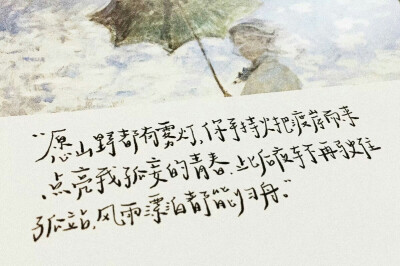 “愿山野都有雾灯,你手持火把渡岸而来
点亮我孤妄的青春.此后夜车不再驶往
孤站,风雨漂泊都能归舟.”